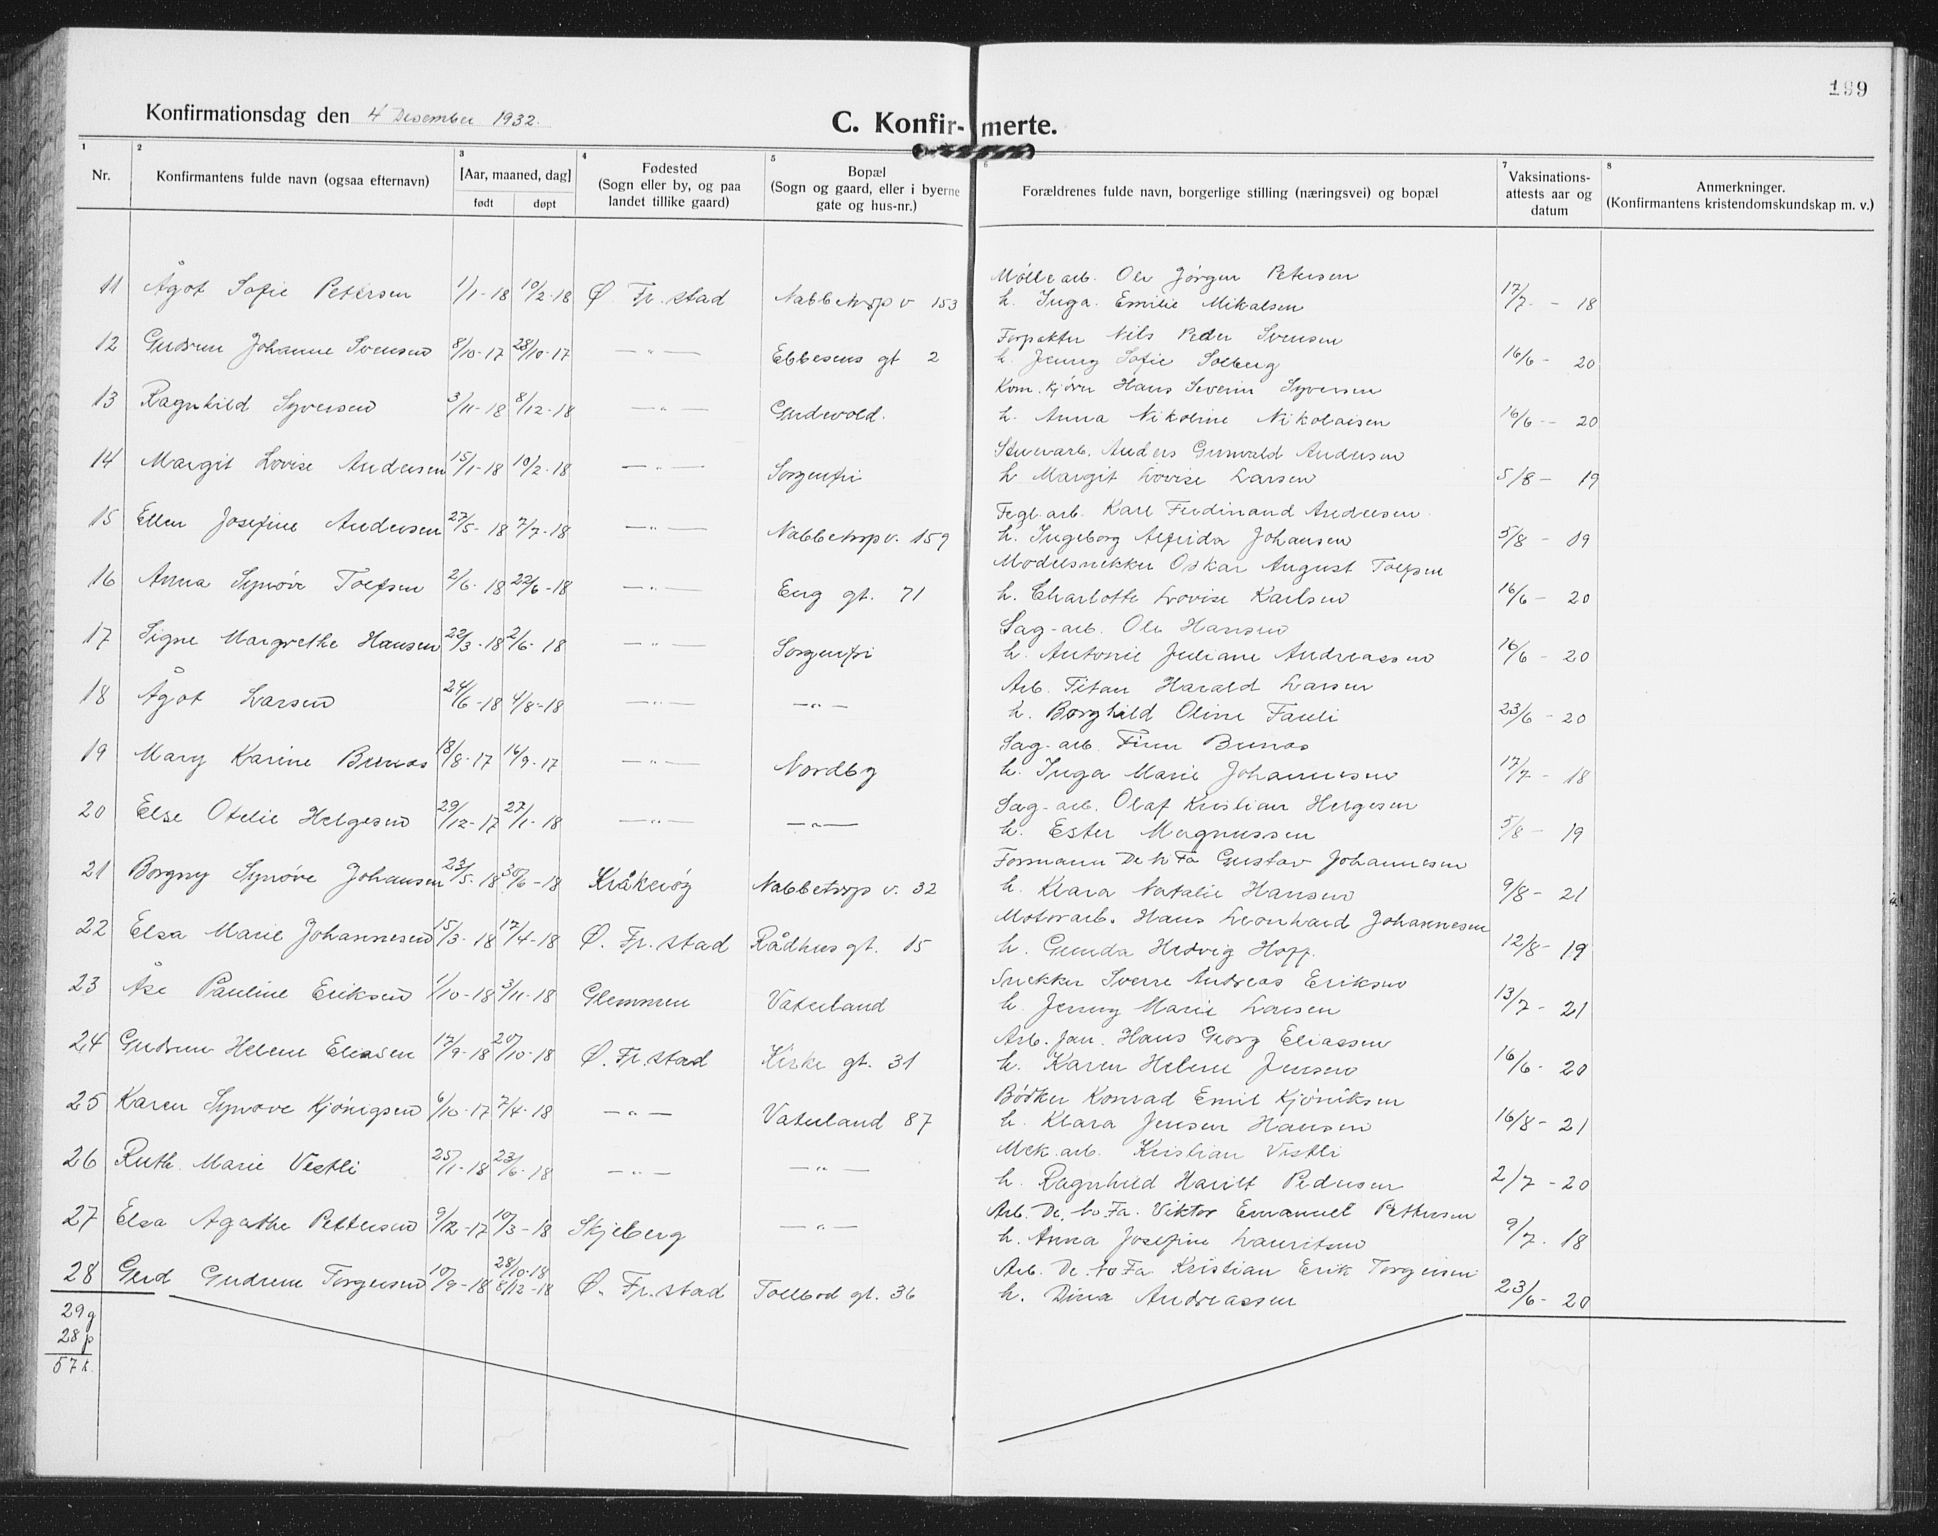 199
Konfirmationsdag den 4 Desember 1932.
C. Konfirmerte.
1 2 3 4 5 6 7 8
Nr.
Konfirmantens fulde navn (ogsaa efternavn)
[Aar, maaned, dag]
født døpt
Fødested
(Sogn eller by, og paa
landet tillike gaard)
Bopæl
(Sogn og gaard, eller i byerne
gate og hus-nr.)
Forældrenes fulde navn, borgerlige stilling (næringsvei) og bopæl
Vaksinations-
attests aar og
datum
Anmerkninger.
(Konfirmantens kristendomskundskap m. v.)
Mølle arb. Ole Jörgen Petersen
11 Ågot Sofie Pettersen 1/1-18 10/2-18 Ø. Fr.stad Nabbetorp v 153 h. Inga Emilie Mikalsen 17/7 - 18
Forpakter Nils Peder Svensen
12 Gudrun Johanne Svensen 8/10-17 28/10-17 —"— Ebbesens gt 2 h. Jenny Sofie Solberg 16/6 - 20
Kom. kjörer Hans Severin Syversen
13 Ragnhild Syversen 3/11-18 8/12-18 —"— Gudevold. h. Anna Nikoline Nikolaisen 16/6 - 20
Stuerarb. Anders Grunvald Andersen
14 Margit Lovise Andersen 15/1-18 10/2-18 —"— Sorgenfri h Margit Lovise Larsen 5/8 - 19
Tegl.arb. Karl Ferdinand Andersen
15 Ellen Josefine Andersen 27/5-18 7/7-18 —"— Nabbetorp v. 159 h. Ingeborg Alfrida Johansen 5/8 - 19
Modelsnekker Oskar August Tolfsen
16 Anna Synöve Tolfsen 2/6-18 22/6-18 —"— Eng gt. 71 h. Charlotte Lovise Karlsen 16/6 - 20
Sag-arb. Ole Hansen
17 Signe Margrethe Hansen 22/3-18 2/6-18 —"— Sorgenfri h. Antonie Juliane Andreassen 16/6 - 20
Arb. Titan Harald Larsen
18 Ågot Larsen 24/6-18 4/8-18 —"— —"— h. Borghild Oline Fauli 23/6 - 20
Sag-arb. Finn Bunæs
19 Mary Karine Bunæs 18/8-17 16/9-17 —"— Nordby h. Inga Marie Johannesen 17/7 - 18
Sag-arb. Olaf Kristian Helgesen
20 Else Otelie Helgesen 29/12-17 27/1-18 —"— —"— h. Ester Magnussen 5/8 - 19
Formann De No Fa Gustav Johannesen
21 Borgny Synöve Johansen 23/5-18 30/6-18 Kråkeröy Nabbetorp v. 32 h. Klara Natalie Hansen 9/8 - 21
Motorarb. Hans Leonhard Johannesen
22 Elsa Marie Johannesen 15/3-18 17/4-18 Ø. Fr.stad Rådhus gt. 15 h. Gunda Hedvig Hoff. 12/8 - 19
Snekker Sverre Andreas Eriksen
23 Åse Pauline Eriksen 1/10-18 3/11-18 Glemmen Vaterland h. Jenny Marie Larsen 13/7 - 21
Arb. Jan. Hans Georg Eliassen
24 Gudrun Helene Eliasen 17/9-18 20/10-18 Ø. Fr.stad Kirke gt. 31 h. Karen Helene Jensen 16/6 - 20
Bödker Konrad Emil Kjöniksen
25 Karen Synöve Kjönigsen 6/10-17 7/4-18 —"— Vaterland 87 h. Klara Jensen Hansen 16/8 - 21
Mek. arb. Kristian Vestli
26 Ruth Marie Vestli 25/1-18 23/6-18 —"— —"— h. Ragnhild Harilt Pedersen 2/7 - 20
Arb. De. No. Fa. Viktor Emanuel Pettersen
27 Elsa Agathe Pettersen 9/12-17 10/3-18 Skjeberg —"— h. Anna Josefine Lauritsen 9/7 - 18
Arb. De. No Fa Kristian Erik Torgersen
28 Gerd Gudrun Torgersen 10/9-18 28/10-18 8/12-18 Ø. Fr.stad Tollbod gt. 36 h. Dina Andreassen 23/6 - 20
29 g
28 p
57 k.